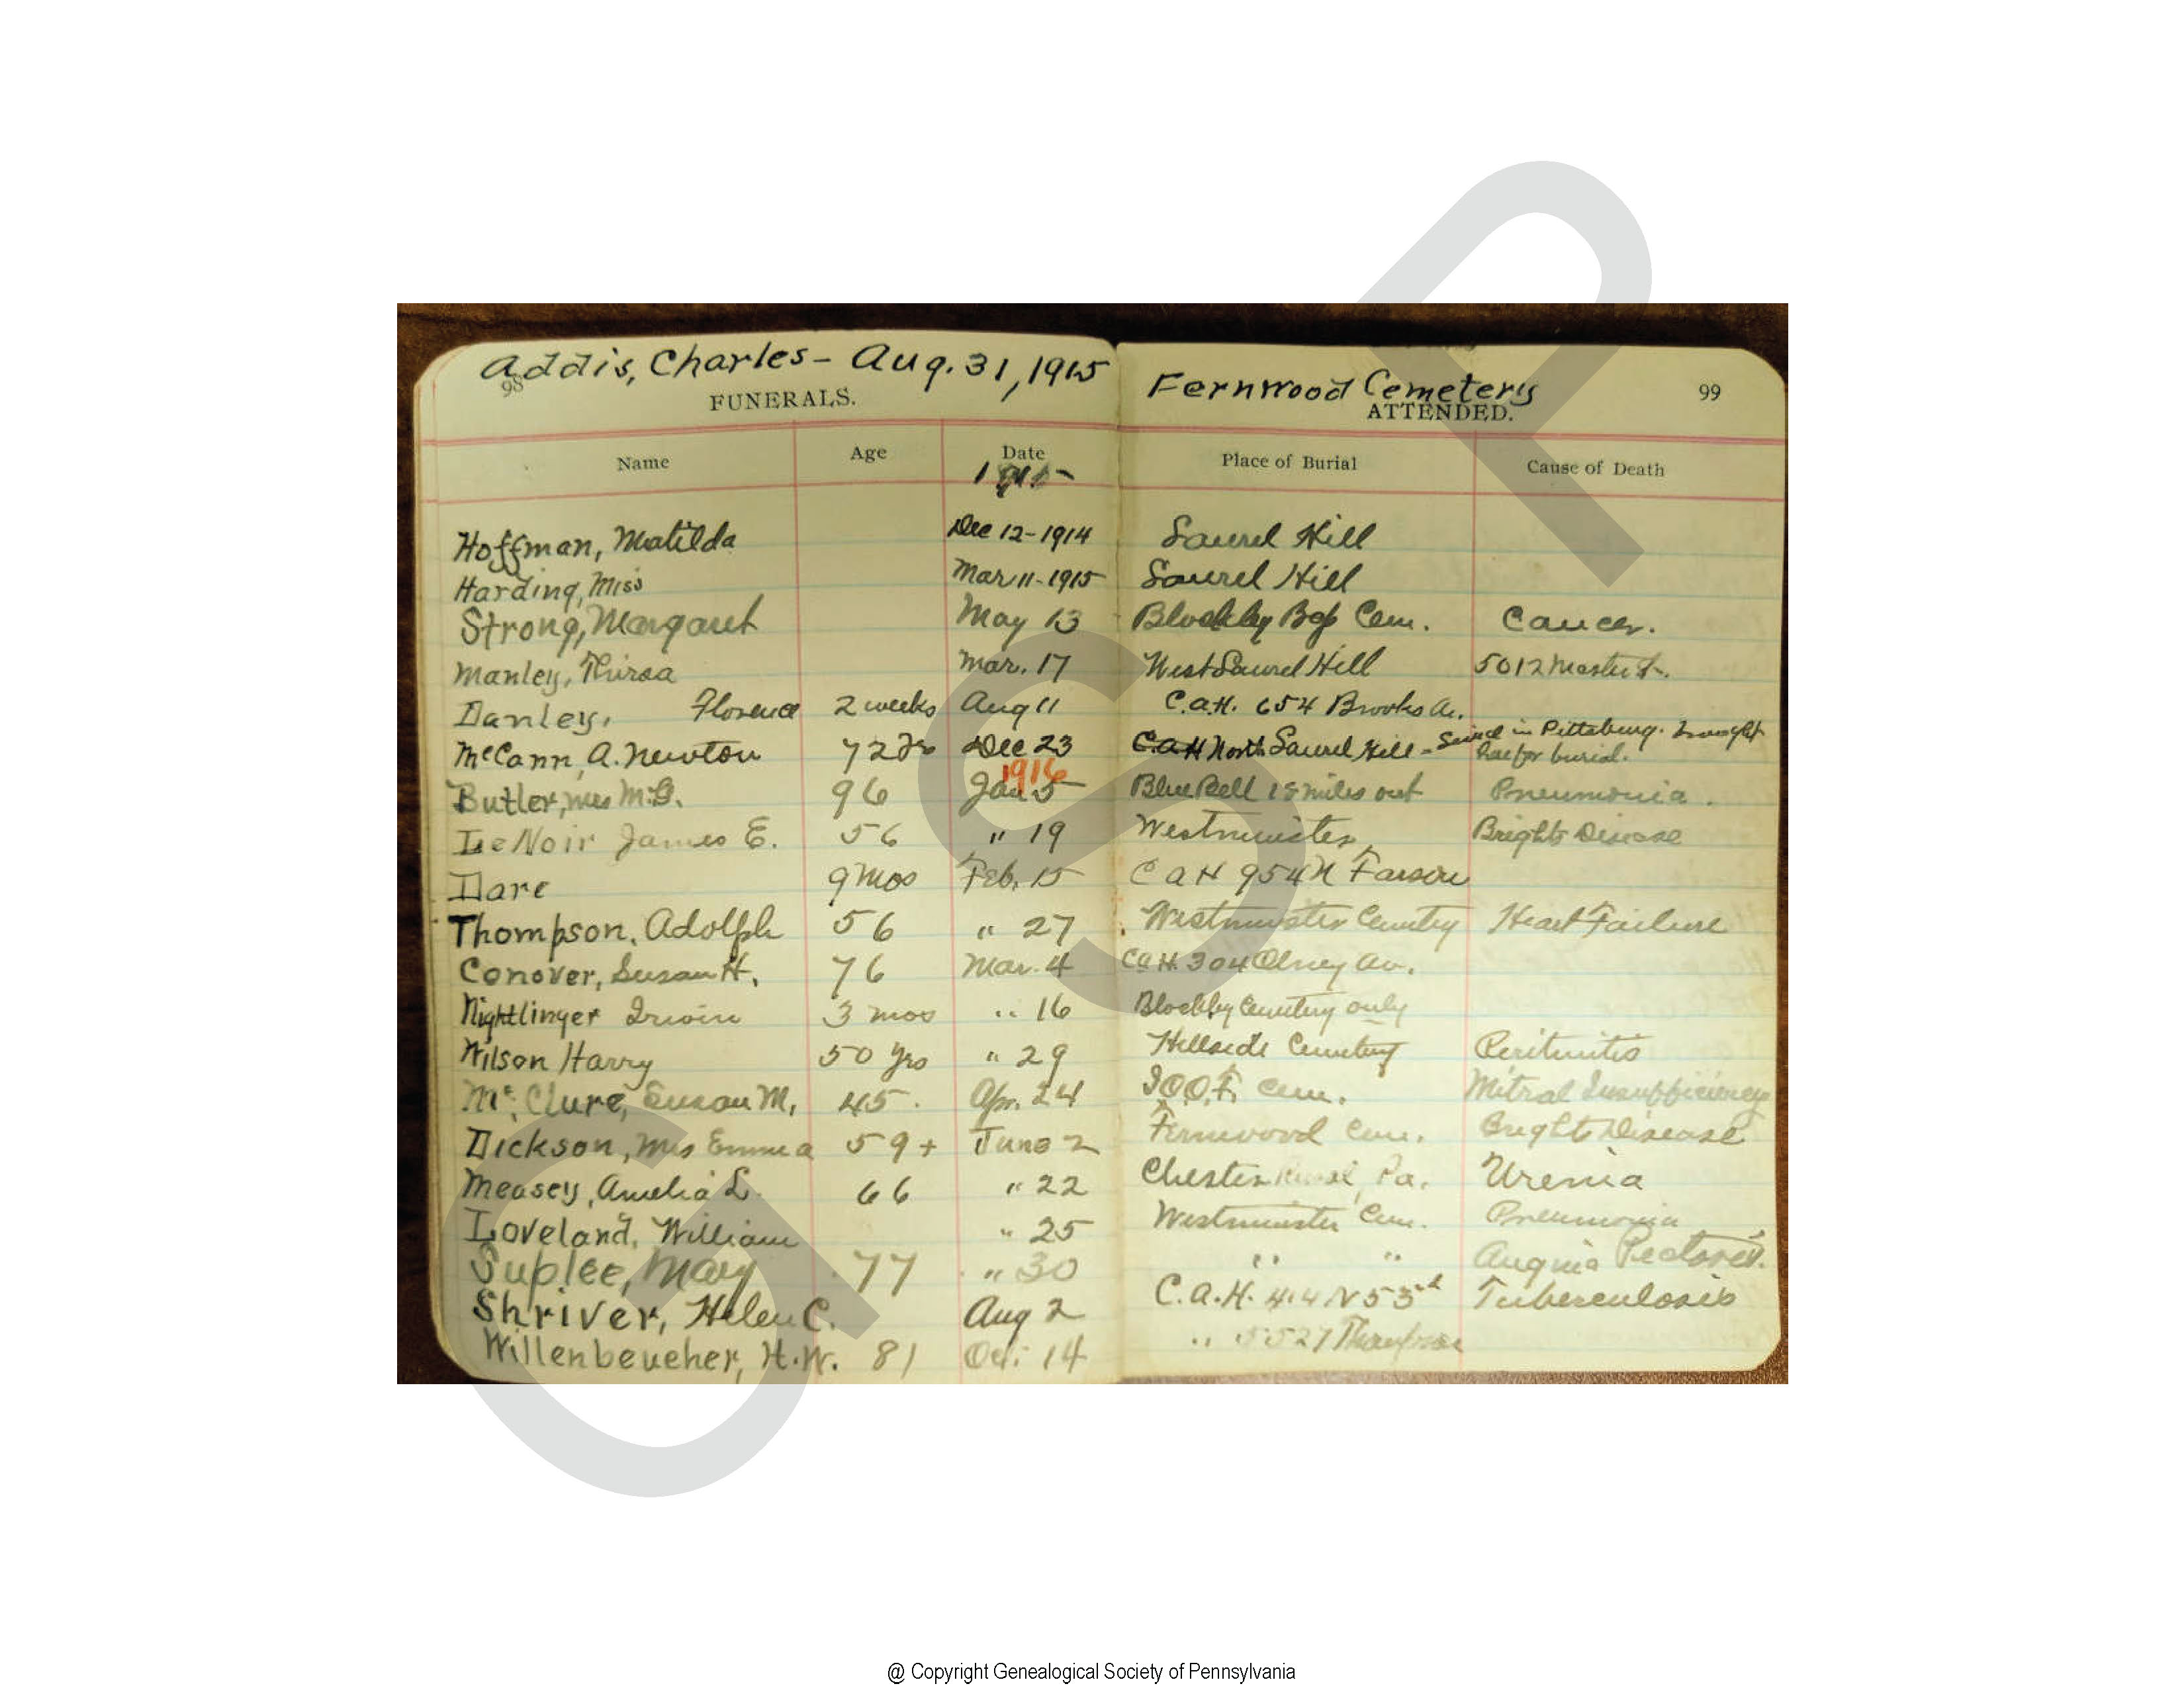 Addis, Charles - Aug. 31, 1915 Fernwood Cemetery
98 FUNERALS. ATTENDED. 99
Name Age Date Place of Burial Cause of Death
1915
Hoffman, Matilda Dec 12-1914 Laurel Hill
Harding, Miss Mar 11-1915 Laurel Hill
Strong, Margaret May 13 Blockley Bap Cem. Cancer.
Manley, Thirsa Mar. 17 West Laurel Hill 5012 Master St.
Danley, Florence 2 weeks Aug 11 C.A.H. 654 Brooks Av.
McCann, A. Newton 72 yrs Dec 23 C.A.H North Laurel Hill - in Pittsburg. brought
for burial.
1916
Butler, Mrs M.G. 96 Jan 5 Blue Bell 18 miles out Pneumonia.
LeNoir James E. 56 " 19 Westminster Brights Disease
Dare 9 mos Feb. 15 C A H 954 N Farson
Thompson, Adolph 56 " 27 Westminster Cemetery Heart Failure
Conover, Susan H. 76 Mar. 4 C A H. 304 Olney Av.
Nightlinger Irwin 3 mos " 16 Blockley Cemetery only
Wilson Harry 50 yrs " 29 Hillside Cemetery Peritinitis
Mc.Clure, Susan M. 45. Apr. 24 I.O.O.F. Cem. Mitral Insufficiency
Dickson, Mrs Emma 59 + June 2 Fernwood Cem. Brights Disease
Measey, Amelia L. 66 " 22 Chester Rural, Pa. Uremia
Loveland, William " 25 Westminster Cem. Pneumonia
Suplee, Mary 77 " 30 " " Angina Pectoris.
Shriver, Helen C. Aug 2 C.A.H. 414 N 53rd Tuberculosis
Willenbeucher, H.W. 81 Oct. 14 " 5527 Thompson
GSP
@ Copyright Genealogical Society of Pennsylvania